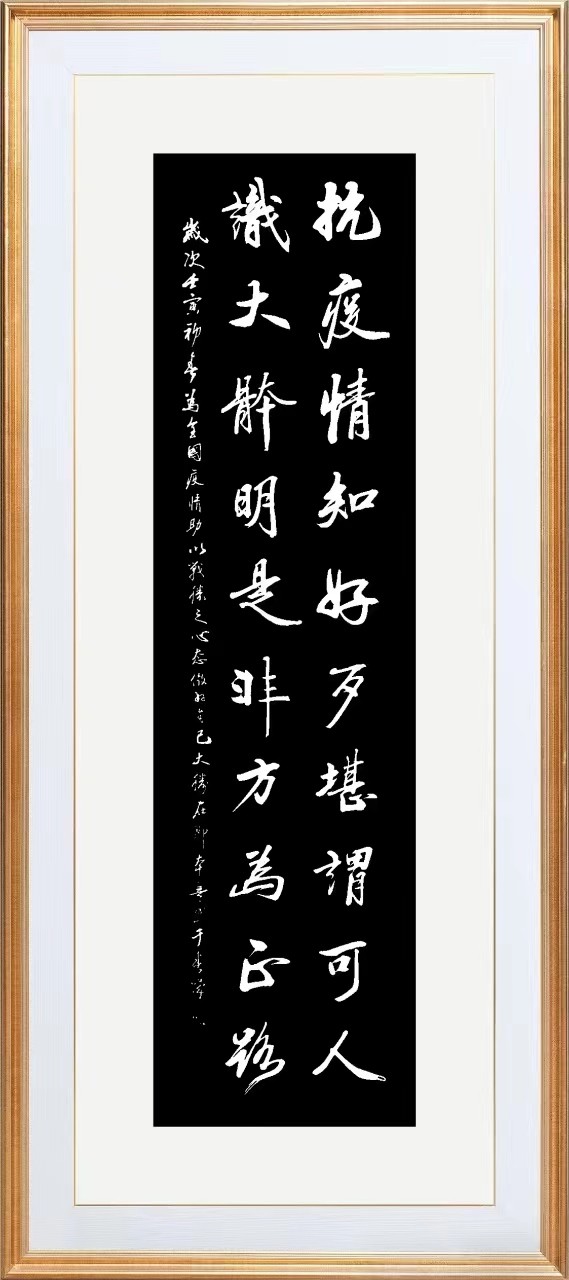 抗疫情知好歹堪謂可人
識大骵明是非方為正路
歲次壬寅初春為全國疫情助以戰勝之心态做好自己大勝在即